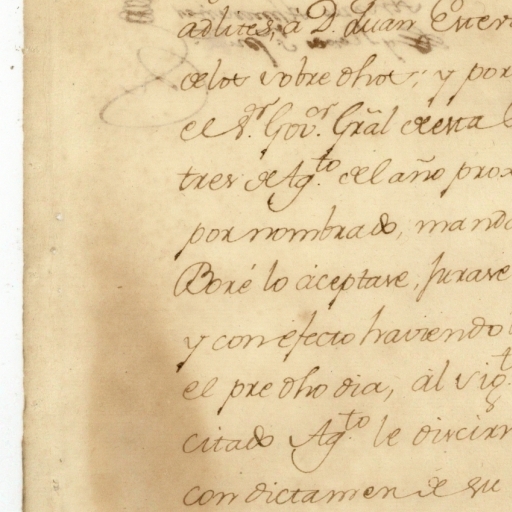 adlites, á D. Juan
delos sobre dhos; y por
el S.ʳ Gov.ʳ Grãl desta
tres de Ag.ᵗᵒ del año prox
por nombrado, mand
Boré lo áceptase, Jurase
y con efecto haviendo
el pre dho dia, ál sig.ᵗ
citado Ag.ᵗᵒ le discirn
con dictamen de su